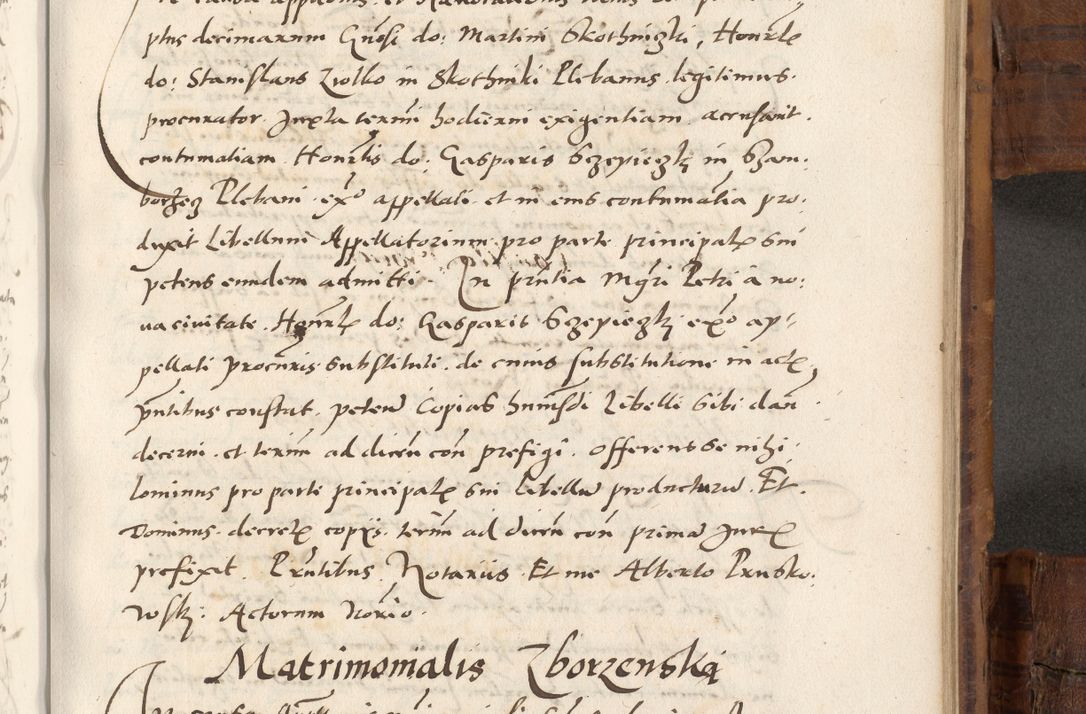 ptus decimarum Gnosi do: Martini Skothniczki, Honrle
do: Stanislaus Ziolko in Skothniki Plebanus legitimus.
procurator. Juxta termi hodierni exigentiam accusavit.
contumatiam Honrlis do: Gasparis Sczepieczki in Szam:
borzecz Plebani ex° appellati et in eius contumatia pro:
duxit Libellum Appellatorium pro parte principalis sui
petens eundem admitti. In prntia Mgri Petri a no:
va civitate. Honrlis do: Gasparis Sczepieczki ex° ap:
pellati procuris substituti. de cuius substitutione in actis
pntibus constat. petens Copias huiusdi Libelli sibi dari
decerni. et termi ad dicen con prefigi. offerens se nihi:
lominus pro parte principalis sui Libellum producturum. Et.
Dominus. decretis copijs. termi ad dicen con prima Juris
prefixit. Prntibus Notariis. Et me Alberto Prusko:
wski. Actorum Norio.
Matrimonialis Zborzenska